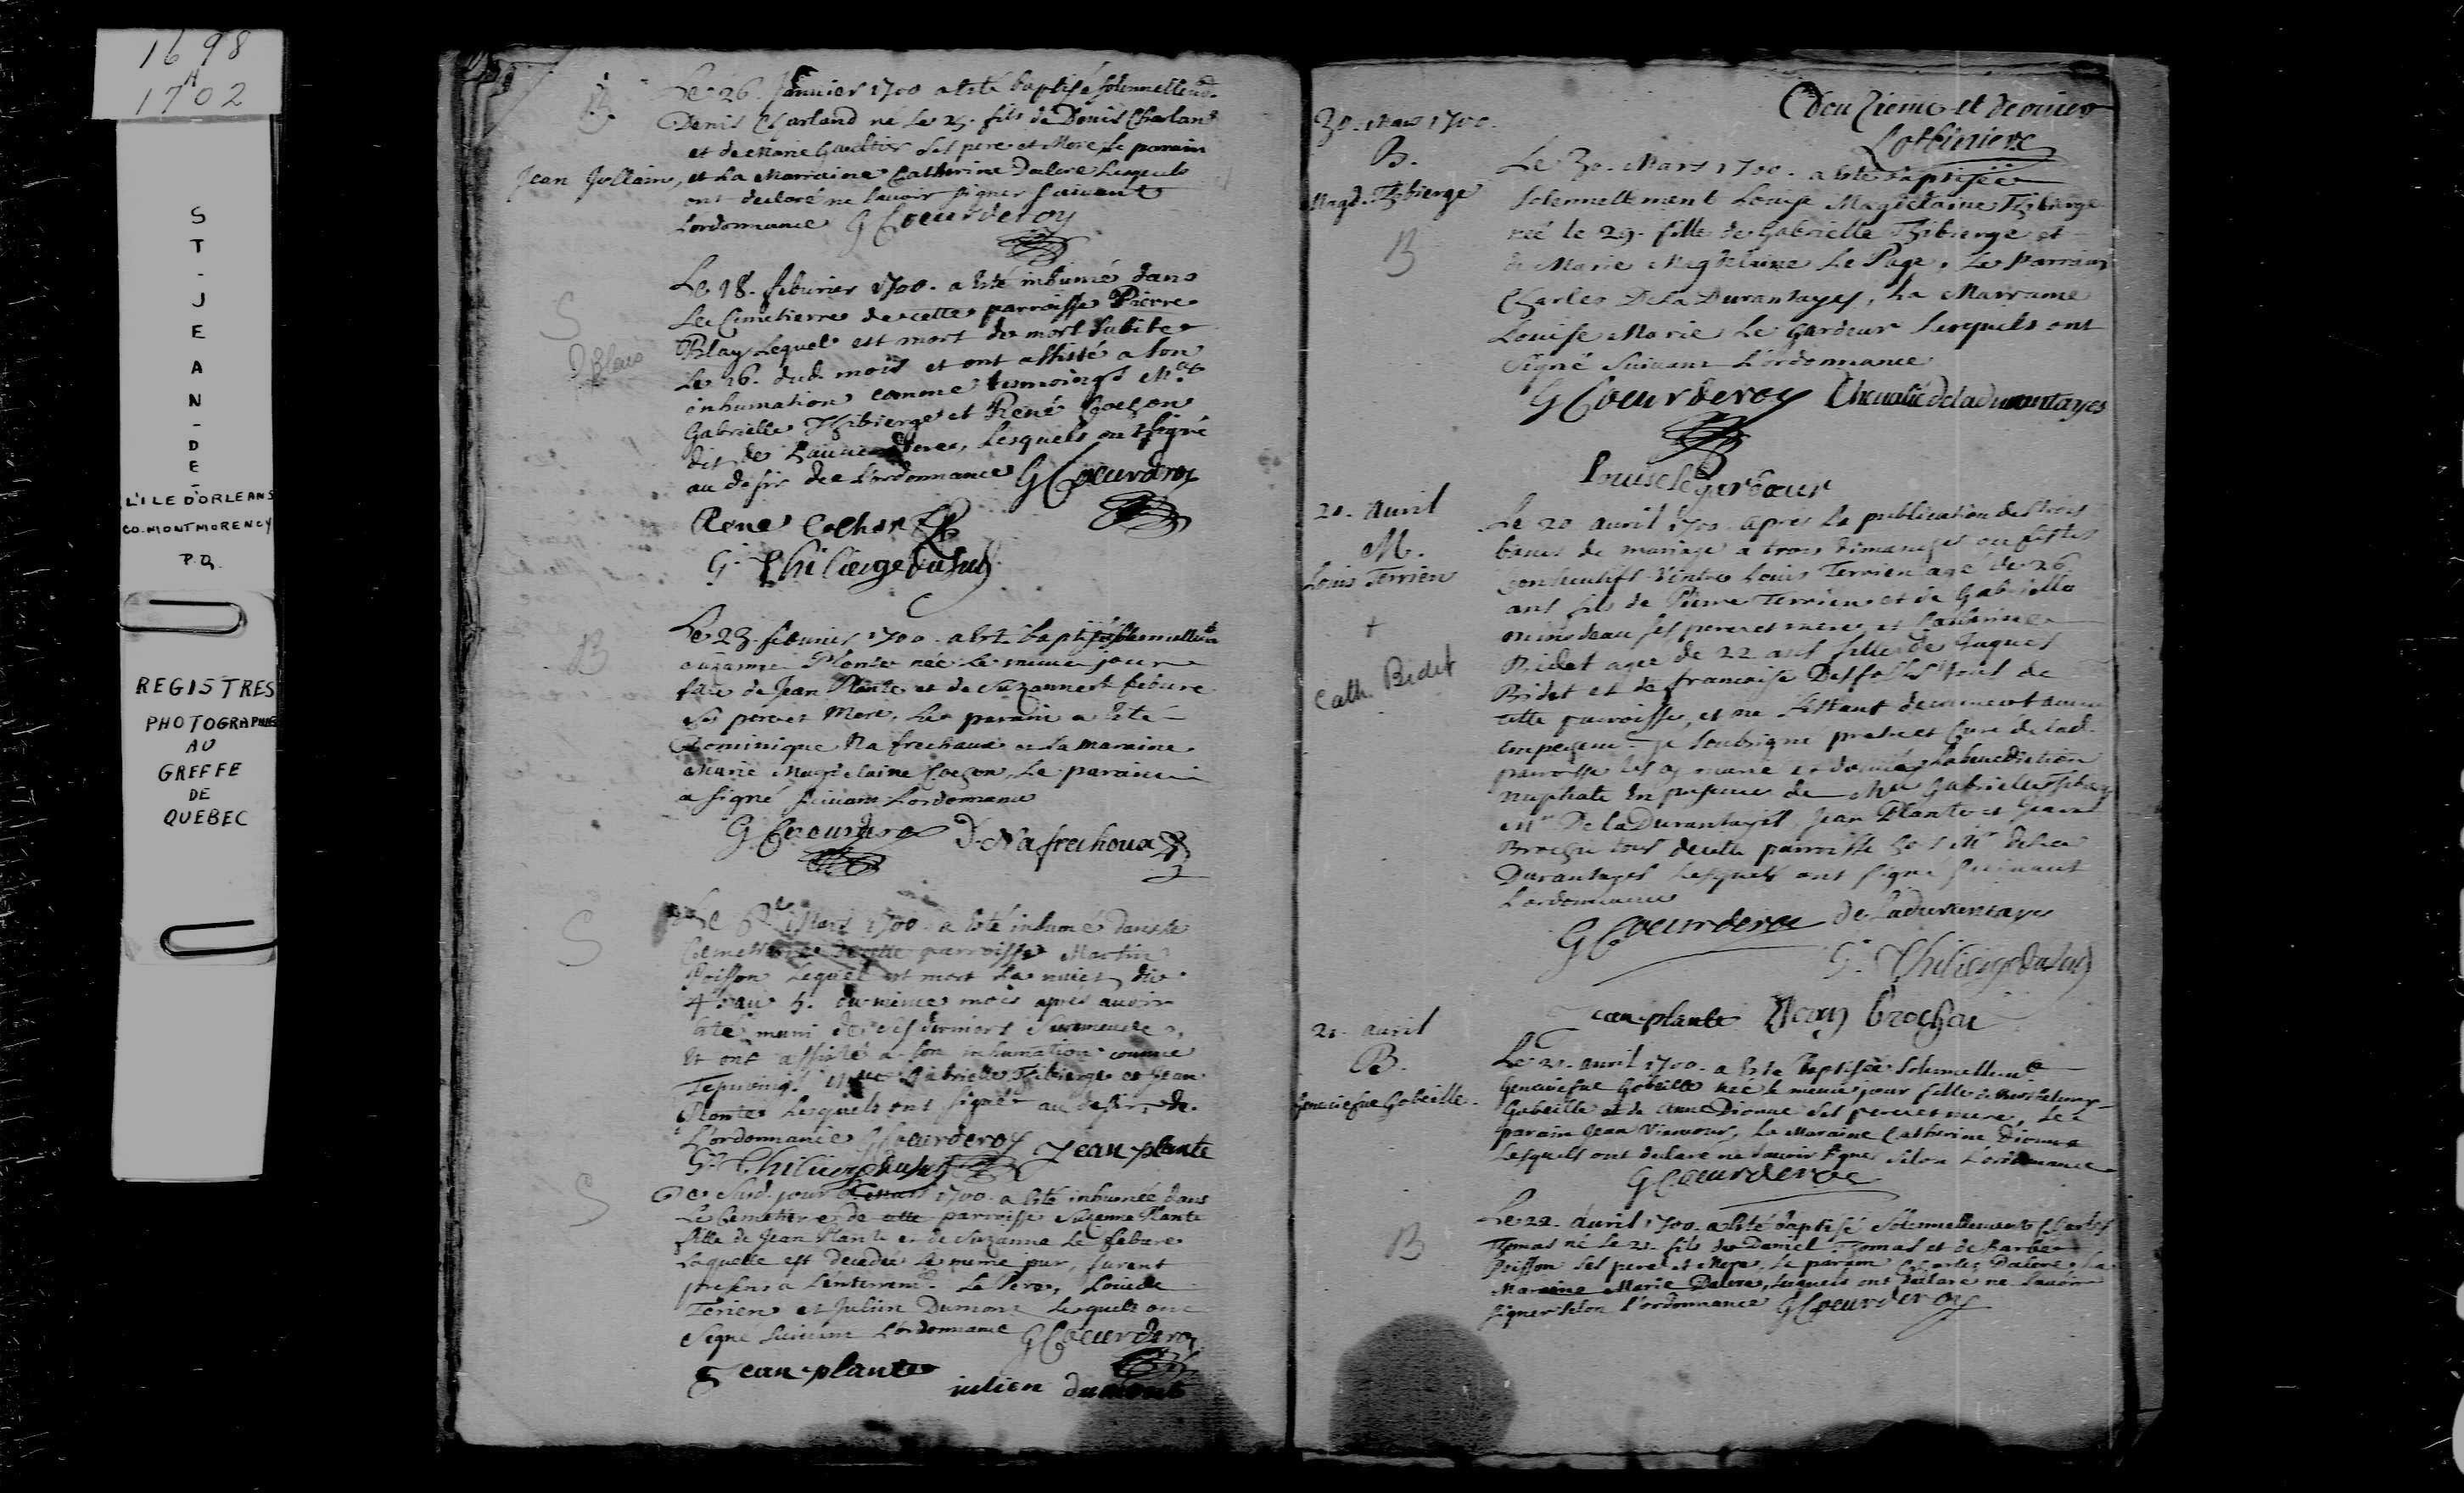 1698
A
1702
ST-JEAN-DE-
L'ILE D'ORLEANS
CO. MONTMORENCY
P.Q.
REGISTRES
PHOTOGRAPHIÉS
AU
GREFFE
DE
QUEBEC
B
Le 26. Janvier 1700 a esté baptisé solennellemt.
Denis Charland né le 25. fils de Denis Charland
et de Marie Gaultier ses pere et Mere, le parain
Jean Jollain, et la Marraine Catherine Dalere Lesquels
ont declaré ne savoir signer suivant
L'ordonnance G Coeurderoy
S
P Blais
Le 18. febvrier 1700. a esté inhumé dans
Le Cimetierre de cette parroisse Pierre
Blay Lequel est mort de mort subite
Le 16. dud. mois et ont assisté a son
inhumation comme tesmoings Mre
Gabrielle Thibierge et René Cochon
dit de lesquels ont signé
au desir de L'ordonnance G Coeurderoy
Rene Cochon
G. Thibierge
B
Le 23. febvrier 1700. a esté baptisé solennellemt
Suzanne Plante née le mesme jour
fille de Jean Plante et de Suzanne le febure
ses pere et Mere, Le parain a esté
Dominique Nafrechoux et La maraine
Marie Magdelaine Cochon, Le parain
a signé suivant L'ordonnance
G Coeurderoy D. Nafrechoux
S
Le 6e Mars 1700. a esté inhumé dans le
Cemetierre de cette parroisse Martin
Poisson Lequel est mort La nuict du
4 au 5. du mesme mois apres avoir
esté muni de ses derniers Sacremens,
Et ont assisté a son inhumation comme
Tesmoings Mre Gabrielle Thibierge et Jean
Plante Lesquels ont signé au desir de
L'ordonnance G Coeurderoy Jean plante
G. Thibierge
S
Le Susd. jour 6. Mars 1700. a esté inhumée dans
Le Cemetierre de cette parroisse Suzanne Plante
fille de Jean Plante et de Suzanne Le febure
Laquelle est decedée le mesme jour, furent
presens a L'enterremt. Le Pere, Louis
Terien et Julien Dumont Lesquels ont
Signé suivant L'ordonnance G Coeurderoy
Jean plante
iulien dumont
douzieme et dernier
Lotbiniere
30. Mars 1700.
B.
Magd. Thibierge
B
Le 30. Mars 1700. a esté baptisée
solennellement Louise Magdelaine Thibierge
née le 29. fille de Gabrielle Thibierge et
de Marie Magdelaine Le Page, Le Parrain
Charles De La Durantayes, La Marraine
Louise Marie Le Gardeur Lesquels ont
signé suivant L'ordonnance
G Coeurderoy Chevalié de la durantayes
Louise le gardeur
20. avril
M.
Louis Terrien
+
Cath. Bidet
Le 20 avril 1700. apres la publication des trois
bancs de mariage a trois dimanches ou festes
consecutifs d'entre Louis Terrien agé de 26
ans fils de Pierre Terrien et de Gabrielle
Mineau ses pere et mere, et Catherine
Bidet agée de 22 ans fille de Jaques
Bidet et de francoise Desfosses tous de
cette parroisse, et ne s'estant decouvert aucun
empeschemt. Je soubsigné prestre et Curé de lad.
parroisse les ay marié et donné la benediction
nuptiale en presence de Mre Gabrielle Thibierge
Mr De la Durantayes, Jean Plante et Jean
Brochu tous de cette parroisse Mr de la
Durantayes Lesquels ont signé suivant
L'ordonnance
G Coeurderoy de Ladurentaye
G. Thibierge
Jean plante Jean brochu
21. avril
B.
Geneviefve Gobeille
Le 21. avril 1700. a esté baptisée Solennellemt
Geneviefve Gobeille née le mesme jour fille de Barthelemy
Gobeille et de Anne Dionne ses pere et mere, Le
parain Jean, La Maraine Catherine Dionne
Lesquels ont declaré ne savoir signer selon L'ordonnance
G Coeurderoy
B
Le 22. avril 1700. a esté baptisé Solennellement Charles
Thomas né le 21. fils de Daniel Thomas et de Barbe
Poisson ses pere et Mere, Le parain Charles Dalere, La
Maraine Marie Dalere, lesquels ont declaré ne savoir
signer selon L'ordonnance G Coeurderoy